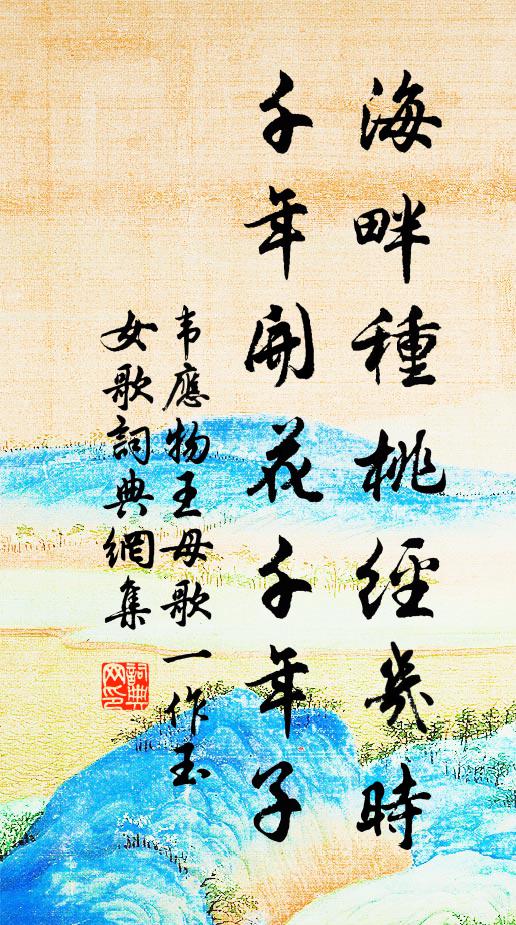 海畔種桃經幾時
千年開花千年子
韦應物王母歌一作玉
女歌詞典網集
詞典
网印